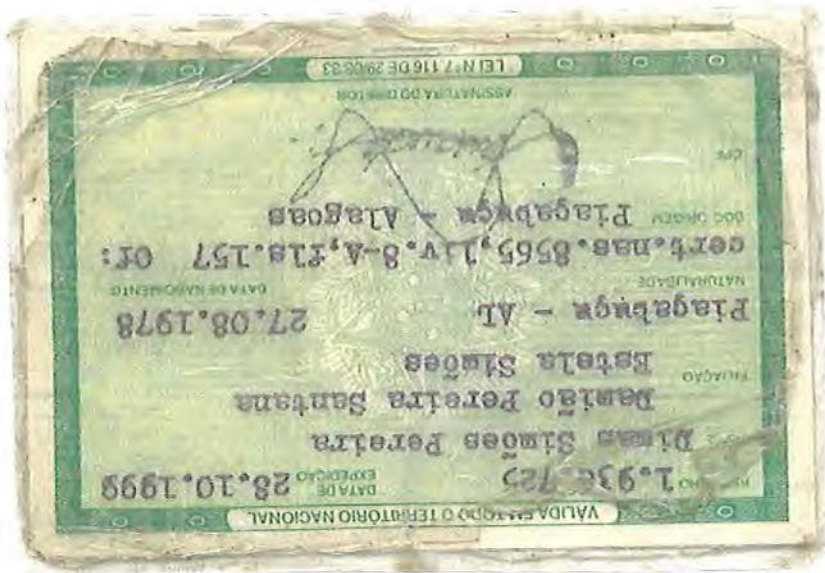 VÁLIDA EM TODO O TERRITÓRIO NACIONAL
DATA DE EXPEDIÇÃO 28.10.1999
Dimas Simões Pereira
FILIAÇÃO
Damião Pereira Santana
Estela Simões
NATURALIDADE DATA DE NASCIMENTO
Piaçabuçu - AL 27.08.1978
DOC ORIGEM cert.nas.8565,liv.8-A,fls.157 Of:
Piaçabuçu - Alagoas
CPF
ASSINATURA DO DIRETOR
LEI Nº 7.116 DE 29/08/83